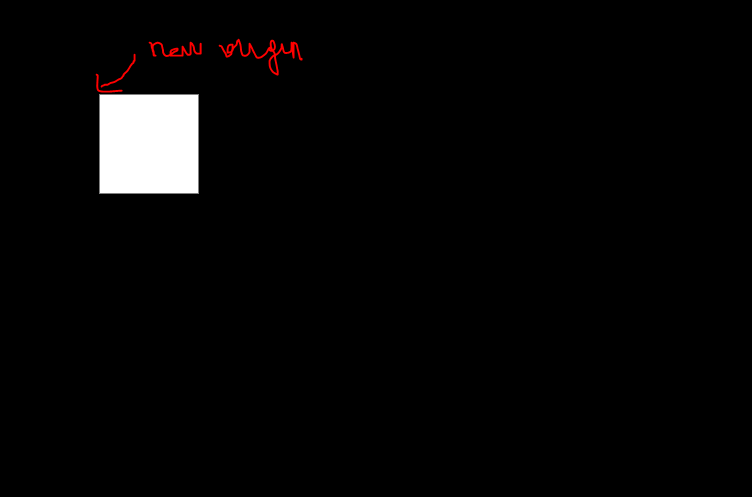 new origin